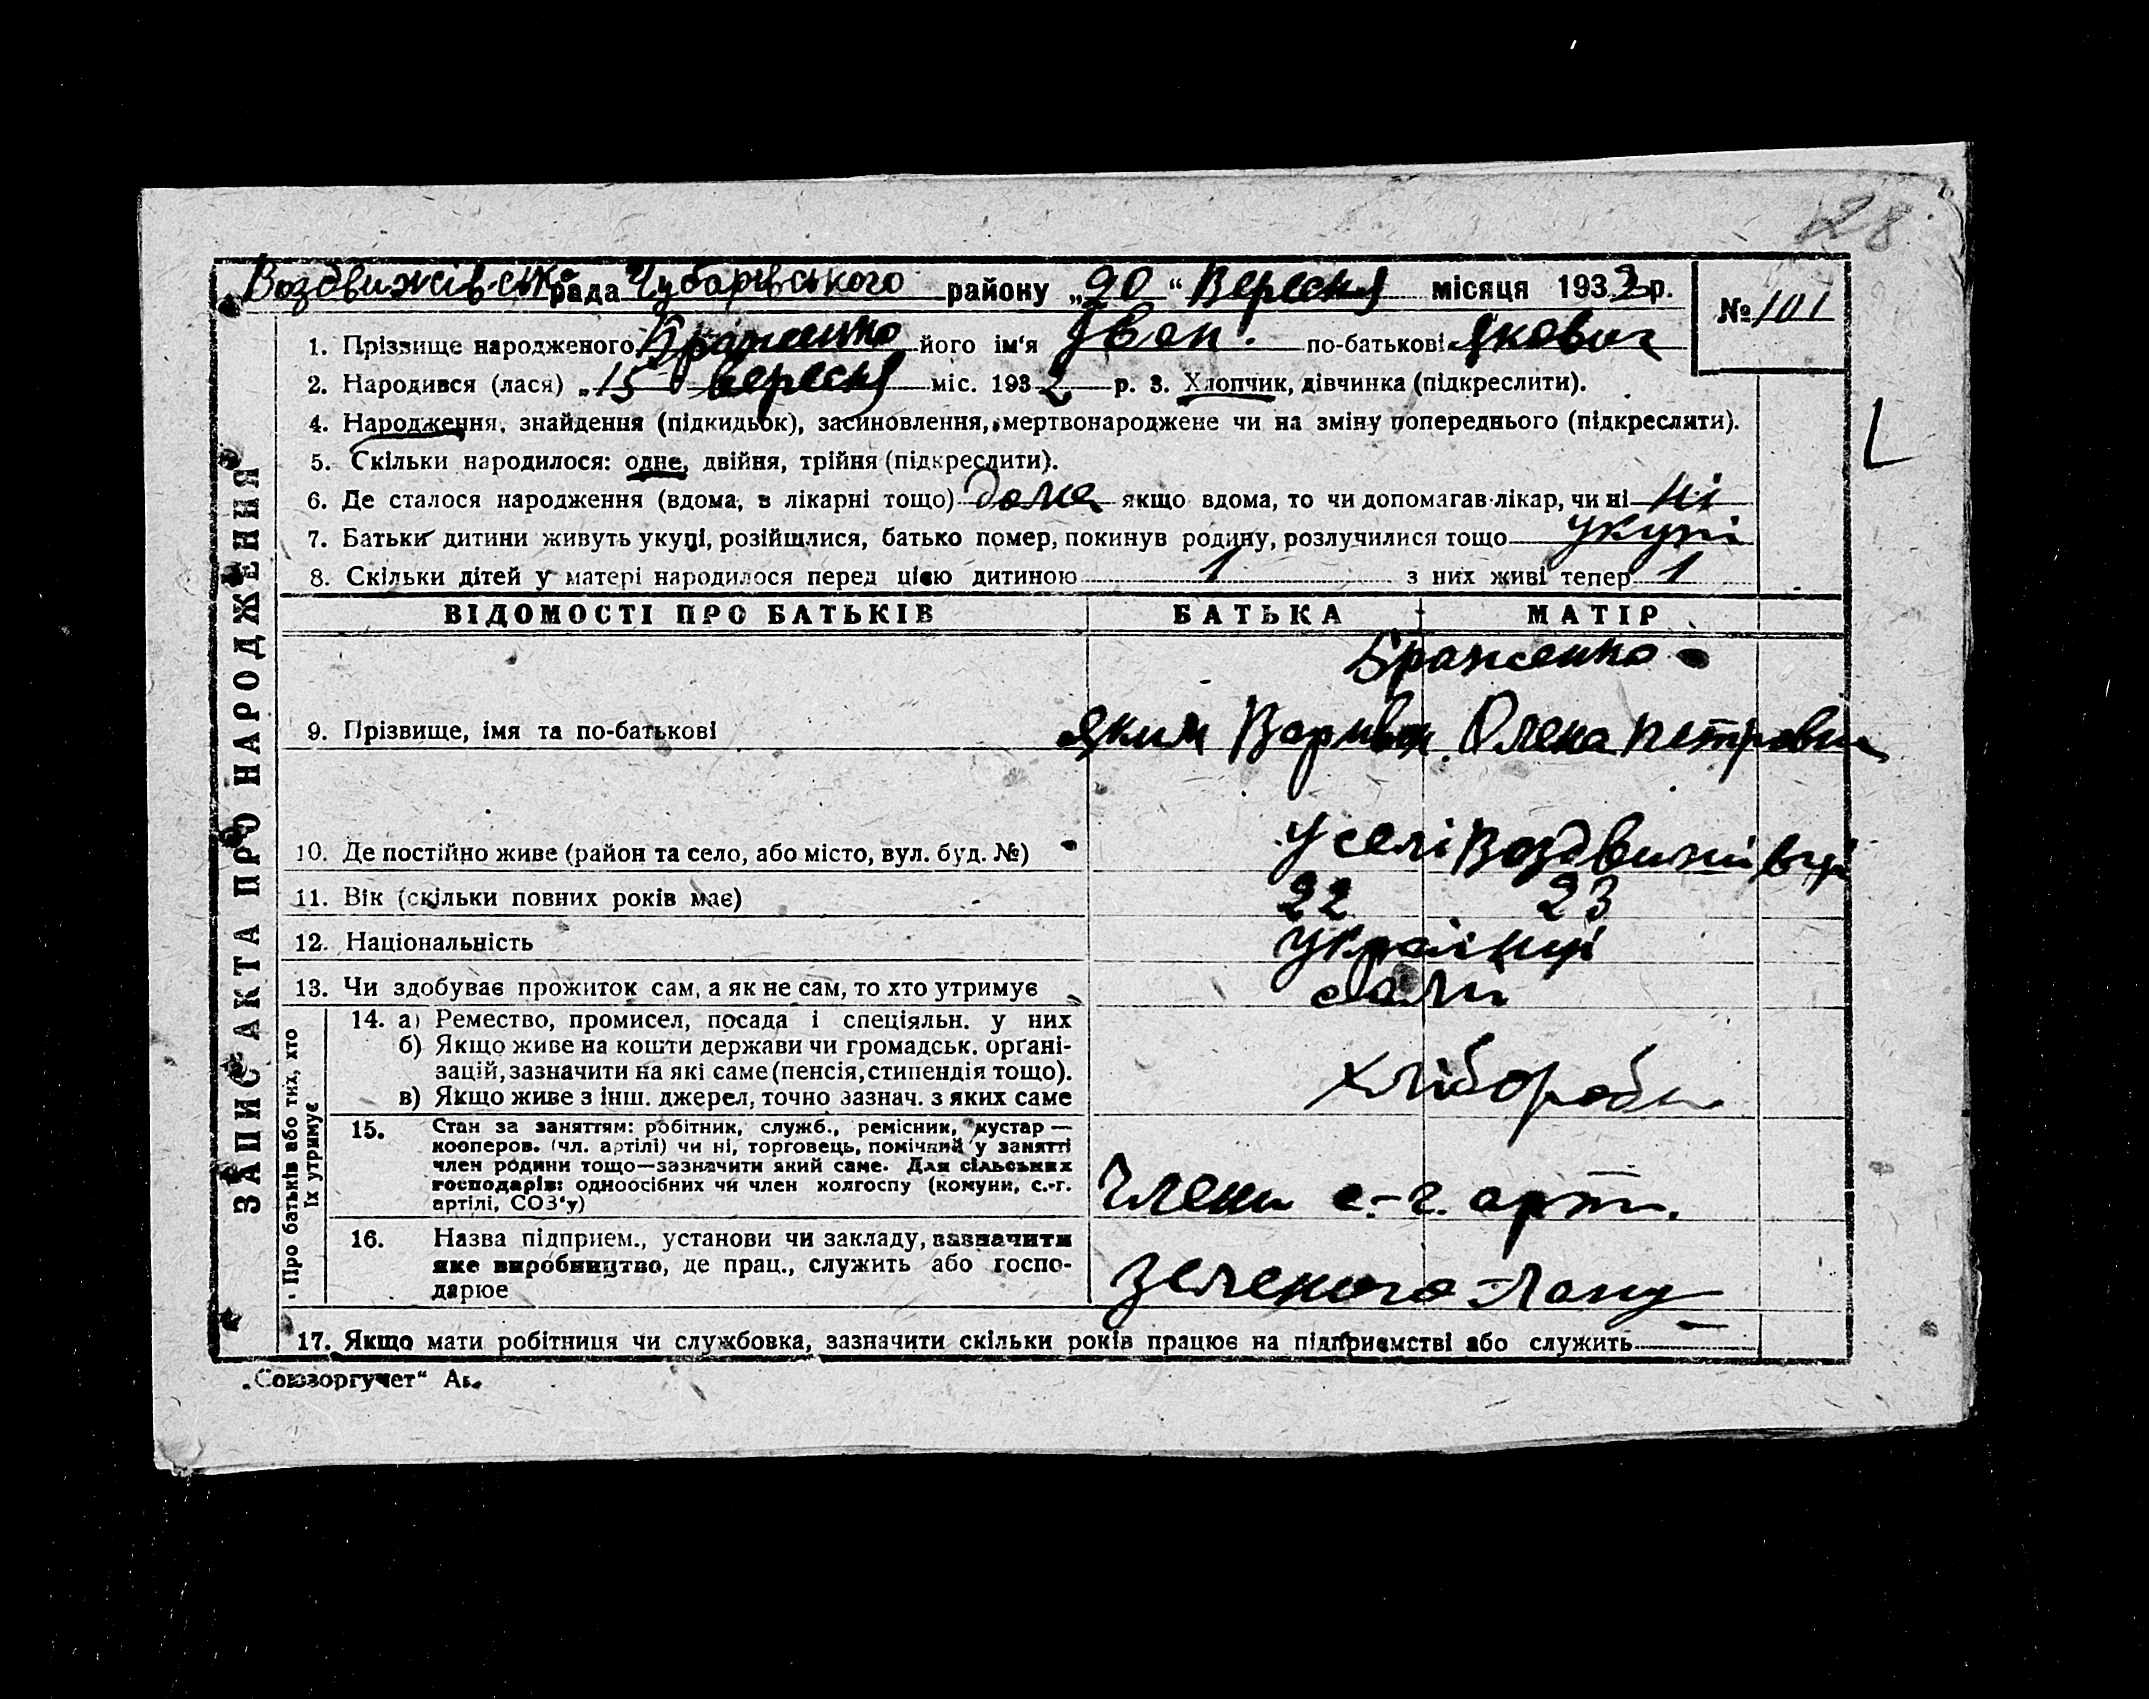 28
Воздвижівська рада Чубарівського району „20“ Вересня місяця 1932 р. № 101
1. Прізвище народженого Браженко його ім'я Іван по-батькові Якович
2. Народився (лася) „15 вересня міс. 1932 р. 3. Хлопчик, дівчинка (підкреслити).
4. Народження, знайдення (підкидьок), засиновлення, мертвонароджене чи на зміну попереднього (підкреслити).
5. Скільки народилося: одне, двійня, трійня (підкреслити).
6. Де сталося народження (вдома, в лікарні тощо) дома якщо вдома, то чи допомагав лікар, чи ні ні
7. Батьки дитини живуть укупі, розійшлися, батько помер, покинув родину, розлучилися тощо укупі
8. Скільки дітей у матері народилося перед цією дитиною 1 з них живі тепер 1
ЗАПИС АКТА ПРО НАРОДЖЕННЯ
ВІДОМОСТІ ПРО БАТЬКІВ БАТЬКА МАТІР
Браженко
9. Прізвище, імя та по-батькові Яким Варивон. Олена Петровна
10. Де постійно живе (район та село, або місто, вул. буд. №) у селі Воздвижівці
11. Вік (скільки повних років має) 22 23
12. Національність українці
13. Чи здобуває прожиток сам, а як не сам, то хто утримує сами
Про батьків або тих, хто їх утримує
14. а) Ремество, промисел, посада і спеціяльн. у них
б) Якщо живе на кошти держави чи громадськ. органі-
зацій, зазначити на які саме (пенсія, стипендія тощо).
в) Якщо живе з інш. джерел, точно зазнач. з яких саме
хлібороби
15. Стан за заняттям: робітник, служб., ремісник, кустар —
кооперов. (чл. артілі) чи ні, торговець, помічний у занятті
член родини тощо—зазначити який саме. Для сільських
господарів: одноосібних чи член колгоспу (комуни, с.-г.
артілі, СОЗ'у)
Члени с.-г. арт.
16. Назва підприєм., установи чи закладу, зазначити
яке виробництво, де прац., служить або госпо-
дарює
Зеленого Лану
17. Якщо мати робітниця чи службовка, зазначити скільки років працює на підприємстві або служить —
„Союзоргучет“